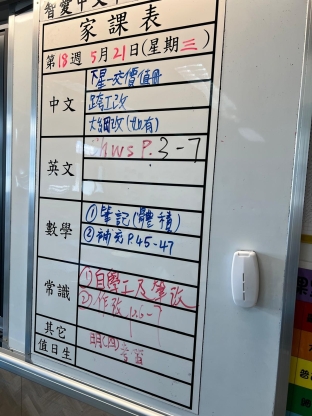 智愛中文
家課表
第18週 5月21日(星期三)
中文
下星一交價值冊
跨工改
大綱改(如有)
英文
WS P.3-7
數學
①筆記(體積)
②補充P.45-47
常識
(1)自學工及單張
(2)作
其它
值日生
明(四)